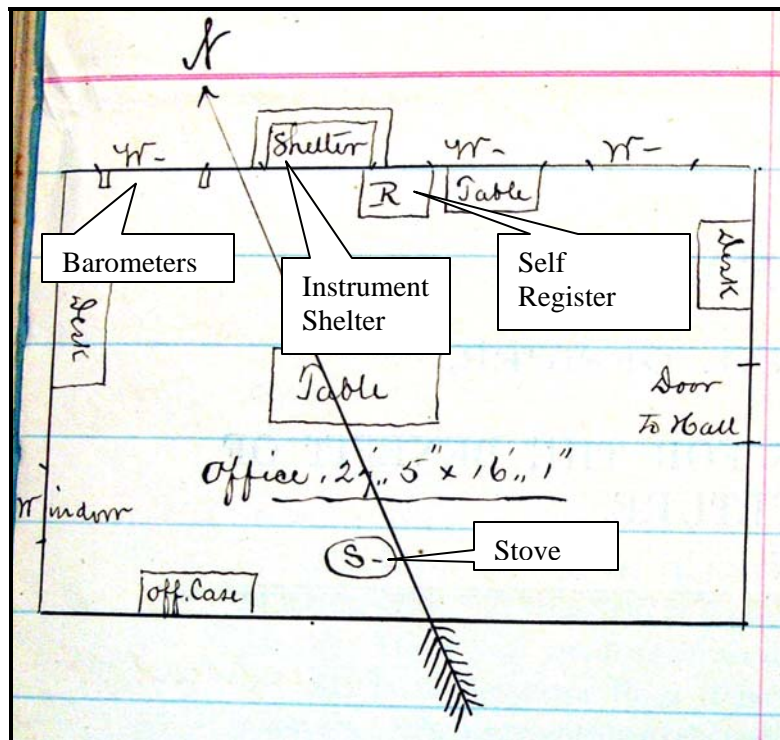 N
Shelter
W-
W-
W-
R
Table
Barometers
Instrument
Shelter
Self
Register
Desk
Desk
Table
Door
To Hall
Office. 27,, 5" x 16,, 1"
Window
S-
Stove
Off. Case